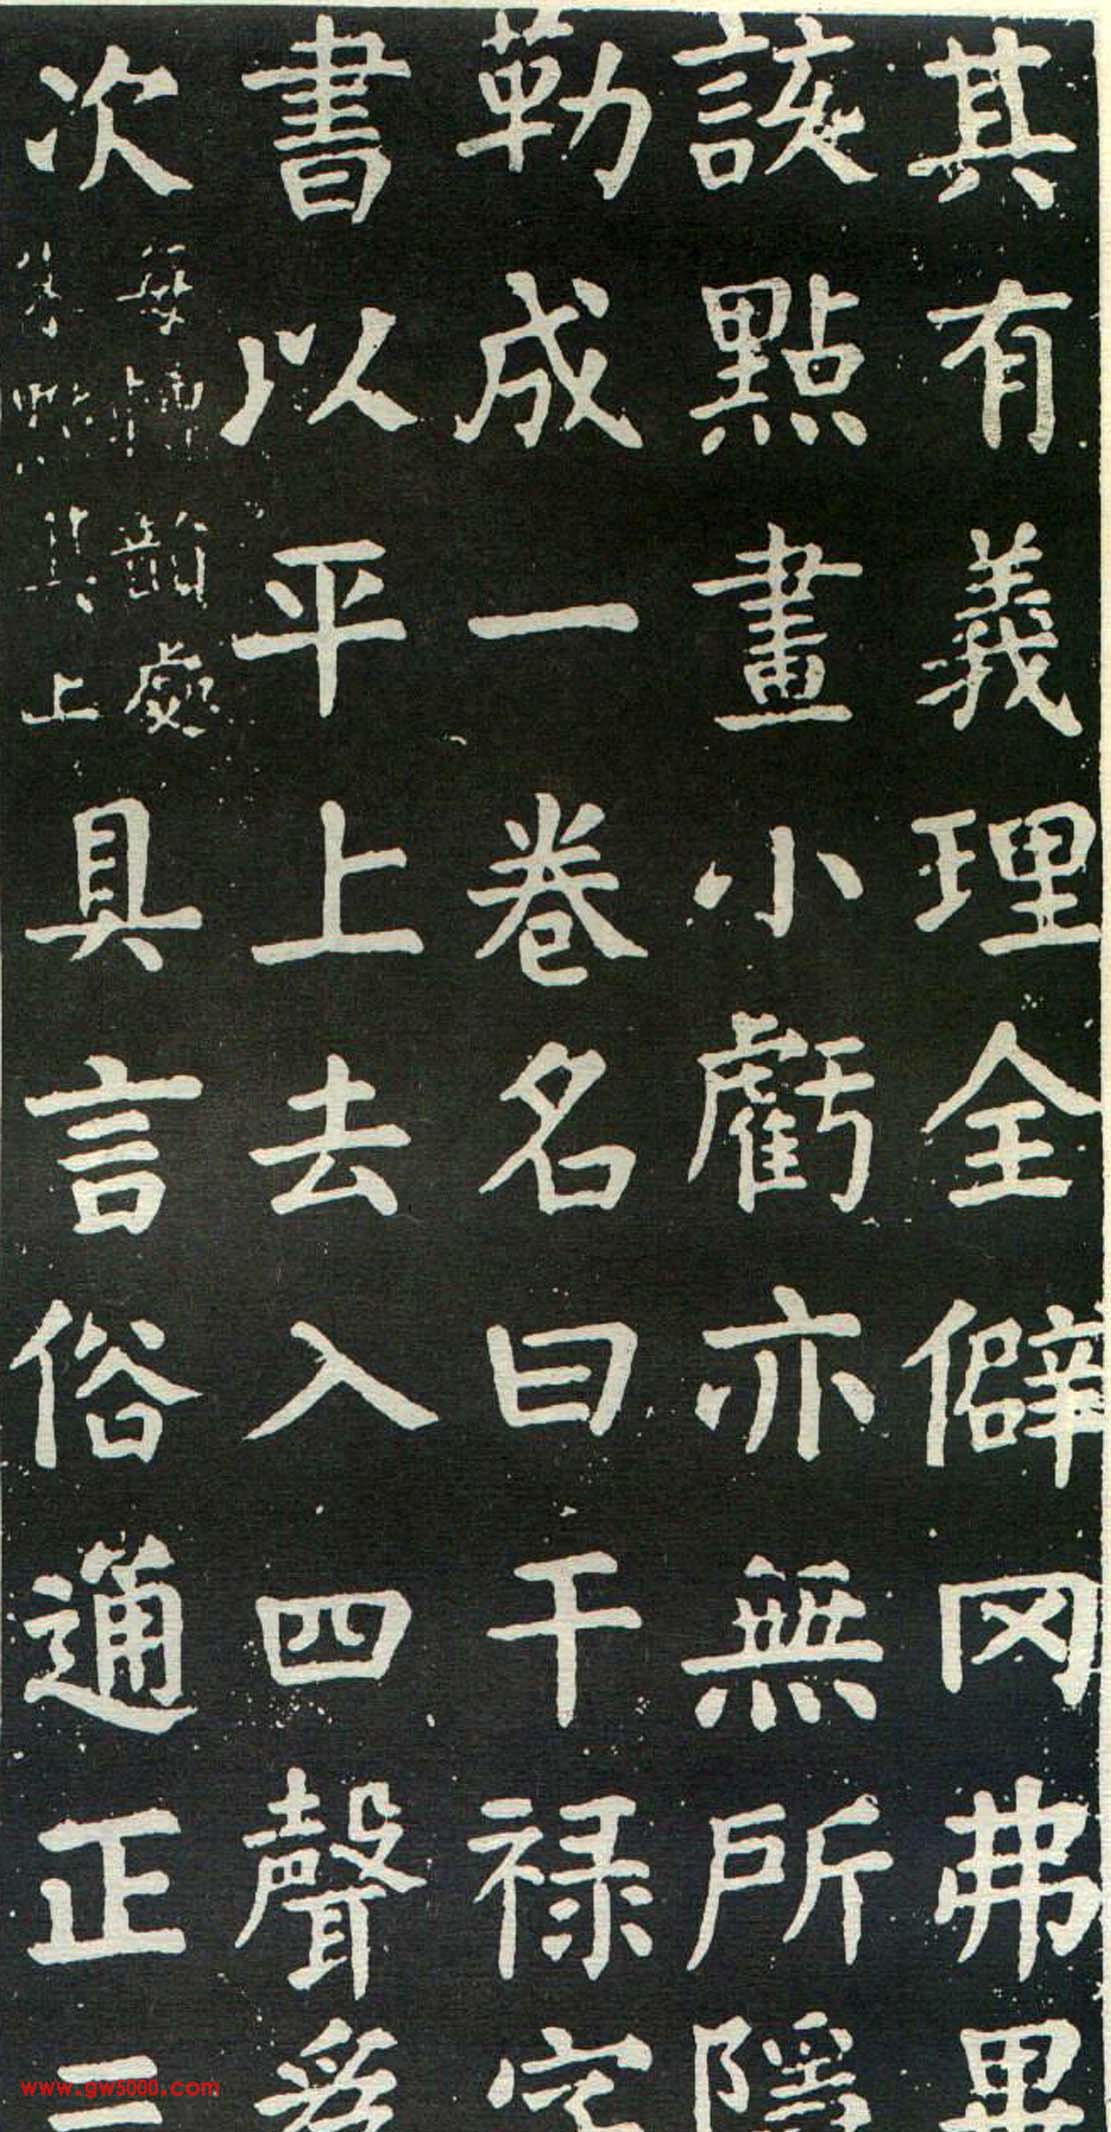 其有義理全僻冈弗畢
該點畫小虧亦無所隱
勒成一卷名曰干禄字
書以平上去入四聲爲
次
具言俗通正三
處
其上
www.gw5000.com